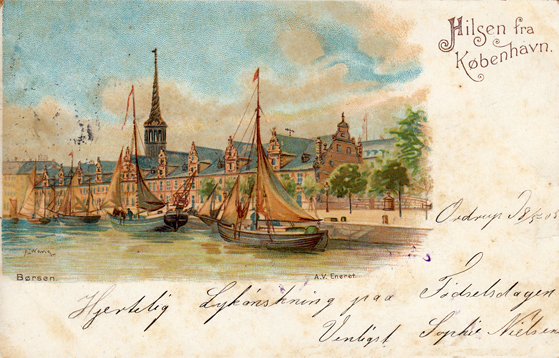 Hilsen fra
København.
Ordrup
Børsen.
A.V. Eneret.
Hjertelig Lykønskning paa Fødselsdagen
Venligst Sophie Nielsen